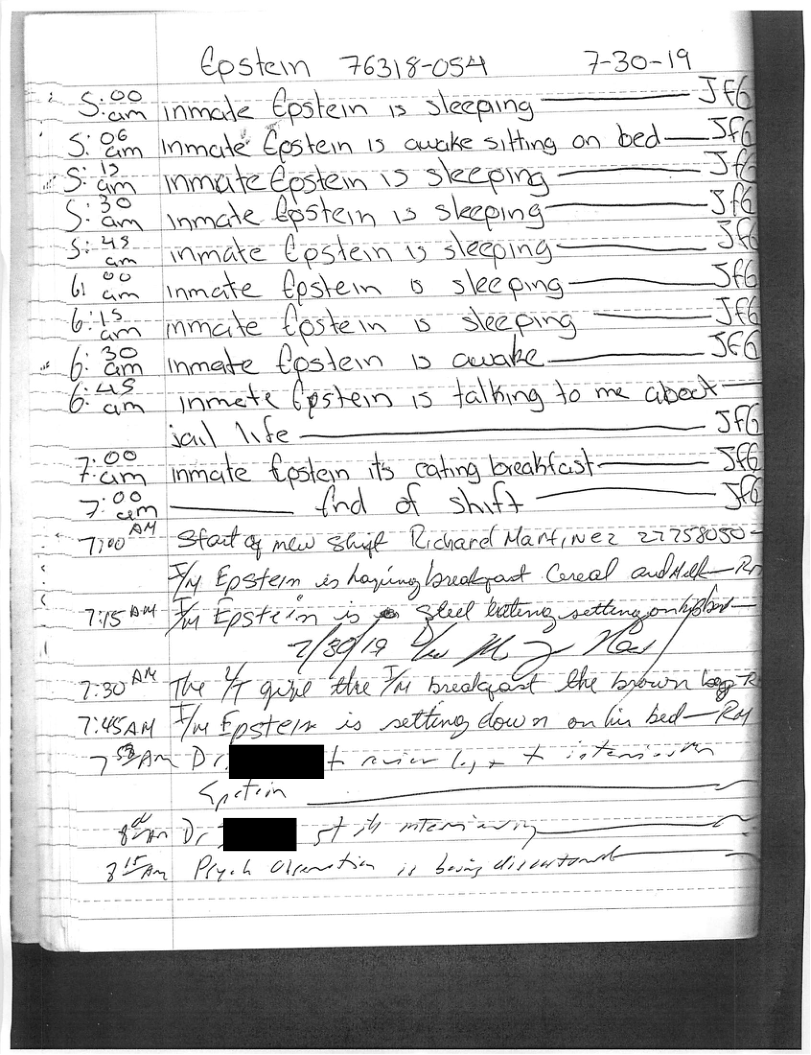 Epstein 76318-054 7-30-19
5:00 am inmate Epstein is sleeping JfG
5:06 am inmate Epstein is awake sitting on bed JfG
5:15 am inmate Epstein is sleeping JfG
5:30 am inmate Epstein is sleeping JfG
5:45 am inmate Epstein is sleeping JfG
6:00 am inmate Epstein is sleeping JfG
6:15 am inmate Epstein is sleeping JfG
6:30 am inmate Epstein is awake JfG
6:45 am inmate Epstein is talking to me about
jail life JfG
7:00 am inmate Epstein its eating breakfast JfG
7:00 am End of shift JfG
7:00 AM Start of new shift Richard Martinez 27758050
I/M Epstein is having breakfast Cereal and Milk RM
7:15 AM I/M Epstein is steel eating setting on his bed
7/30/19
7:30 AM The I/M breakfast the brown bag R
7:45 AM I/M Epstein is setting down on his bed RM
7 AM Dr. to review log +
Epstein
8 AM Dr interviewing
8 15 AM Psych Observation is being discontinued